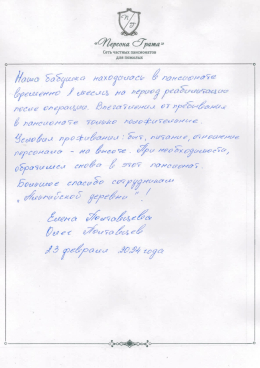 «Персона Грата»
Сеть частных пансионатов
для пожилых
Наша бабушка находилась в пансионате
временно 1 месяц на период реабилитации
после операции. Впечатления от пребывания
в пансионате только положительные.
Условия проживания: быт, питание, отношение
персонала - на высоте. При необходимости,
обратимся снова в этот пансионат.
Большое спасибо сотрудникам
"Английской деревни"!
Елена Полтавцева
Олег Полтавцев
23 февраля 2024 года